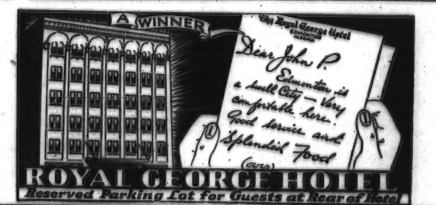 A WINNER
The Royal George Hotel
EDMONTON
Dear John P.
Edmonton is
a swell City — Very
comfortable here.
Good service and
Splendid Food
(over)
ROYAL GEORGE HOTEL
Reserved Parking Lot for Guests at Rear of Hotel